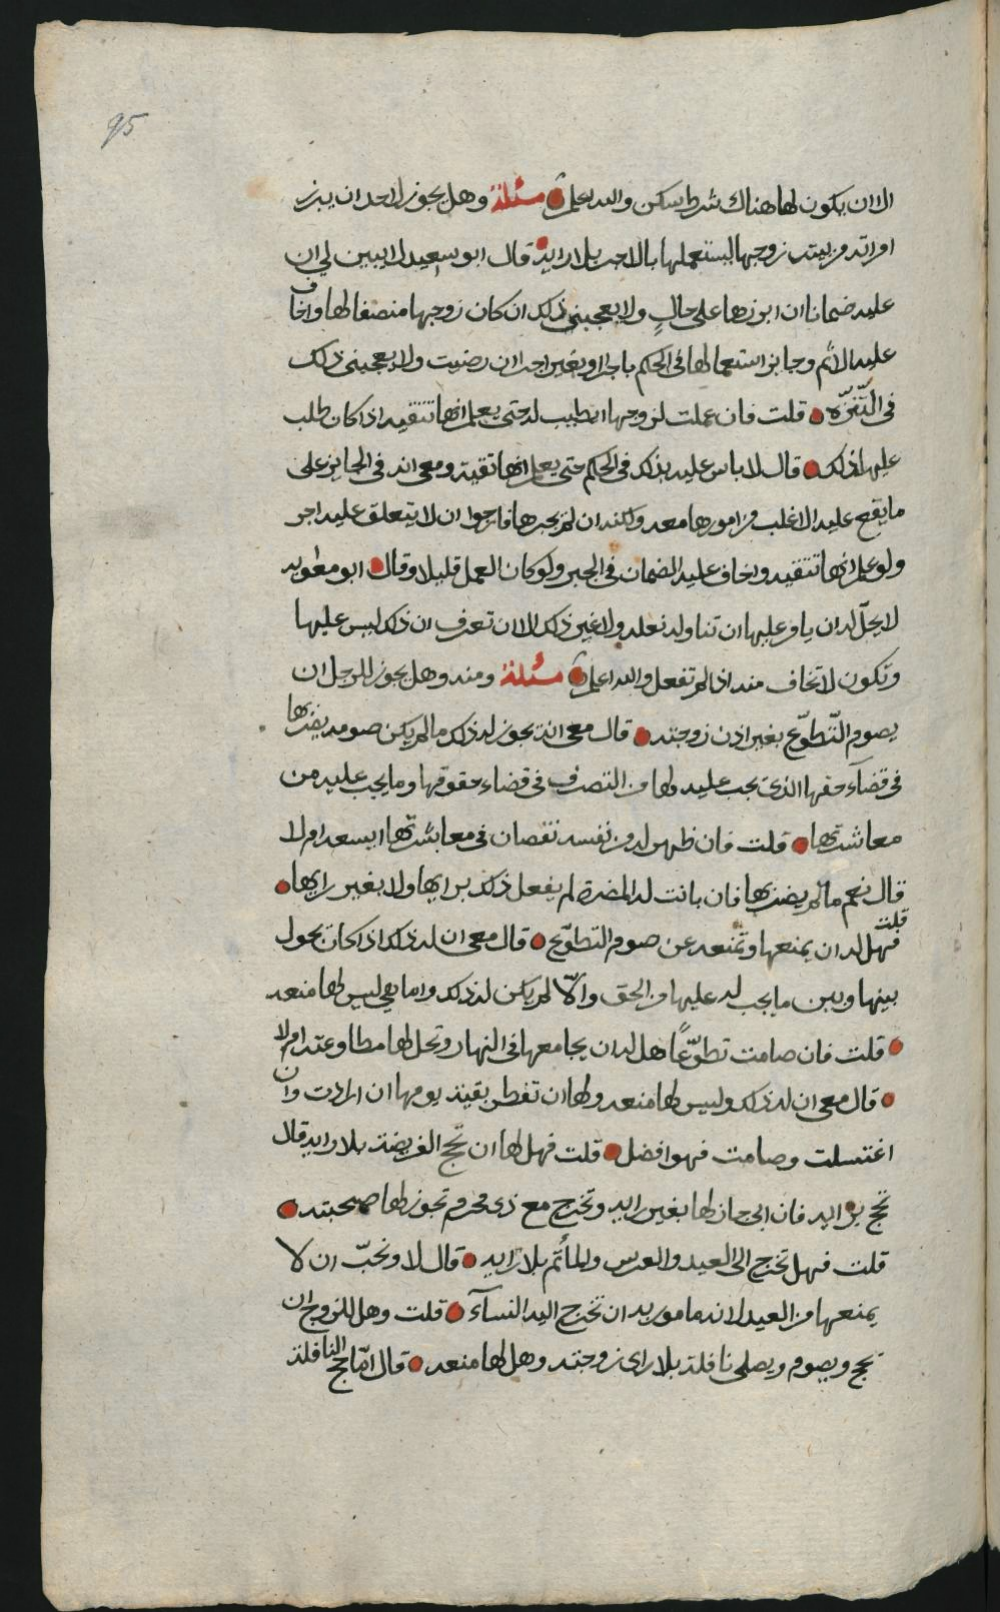 95
الا ان يكون لها هناك شرط سكن والله اعلم مسئلة وهل يجوز لاحد ان يبرز
امراته من بيت زوجها ليستعملها بالاجر بلا رايه قال ابو سعيد لا يبين لي ان
عليه ضمانا ان ابرزها على حالٍ ولا يعجبني ذلك ان كان زوجها منصفا لها واخاف
عليه الاثم وجايز استعمالها في الحكم باجر او بغير اجر ان رضيت ولا يعجبني ذلك
في التّنزّه قلت فان عملت لزوجها ايطيب له حتى يعلم انها تتقيه اذا كان طلب
عليها ذلك قال لا باس عليه بذلك في الحكم حتى يعلم انها تقية ومعي انه في الجايز على
ما يقع عليه الاغلب من امورها معه ولكنه ان لم يجبرها فارجوا ان لا يتعلق عليه اجر
ولو علم انها تتقيه واخاف عليه الضمان في الجبر ولو كان العمل قليلا وقال ابو معاويه
لا يحلّ له ان يامر عليها ان تناوله نعله ولا غير ذلك الا ان تعرف ان ذلك ليس عليها
وتكون لا تخاف منه اذا لم تفعل والله اعلم مسئلة ومنه وهل يجوز للرجل ان
يصوم التّطوّع بغير اذن زوجته قال معي انه يجوز له ذلك ما لم يكن صومه يضرها
في قضآء حقها الذي يجب عليه لها من التصرف في قضاء حقوقها وما يجب عليه من
معاشرتها قلت فان ظهر له من نفسه نقصان في معاشرتها ايسعه ام لا
قال نعم ما لم يضر بها فان بانت له المضرة لم يفعل ذلك برايها ولا بغير رايها
قلت فهل له ان يمنعها وتمنعه عن صوم التطوّع قال معي ان له ذلك اذا كان يحول
بينها وبين ما يجب له عليها من الحق والّا لم يكن له ذلك واما هي ليس لها منعه
قلت فان صامت تطوّعًا هل له ان يجامعها في النهار وتحل لها مطاوعته ام لا
قال معي ان له ذلك وليس لها منعه ولها ان تفطر بقية يومها ان ارادت وان
اغتسلت وصامت فهو افضل قلت فهل لها ان تحج الفريضة بلا رايه قال
تحج برايه فان ابى جاز لها بغير رايه وتخرج مع ذي محرم تجوز لها صحبته
قلت فهل تخرج الى العيد والعرس والمأتم بلا رايه قال لا ونحبّ ان لا
يمنعها من العيد لانه مامور به ان تخرج اليه النسآء قلت وهل للزوج ان
يحج ويصوم ويصلي نافلة بلا راي زوجته وهل لها منعه قال امّا الحج النافلة